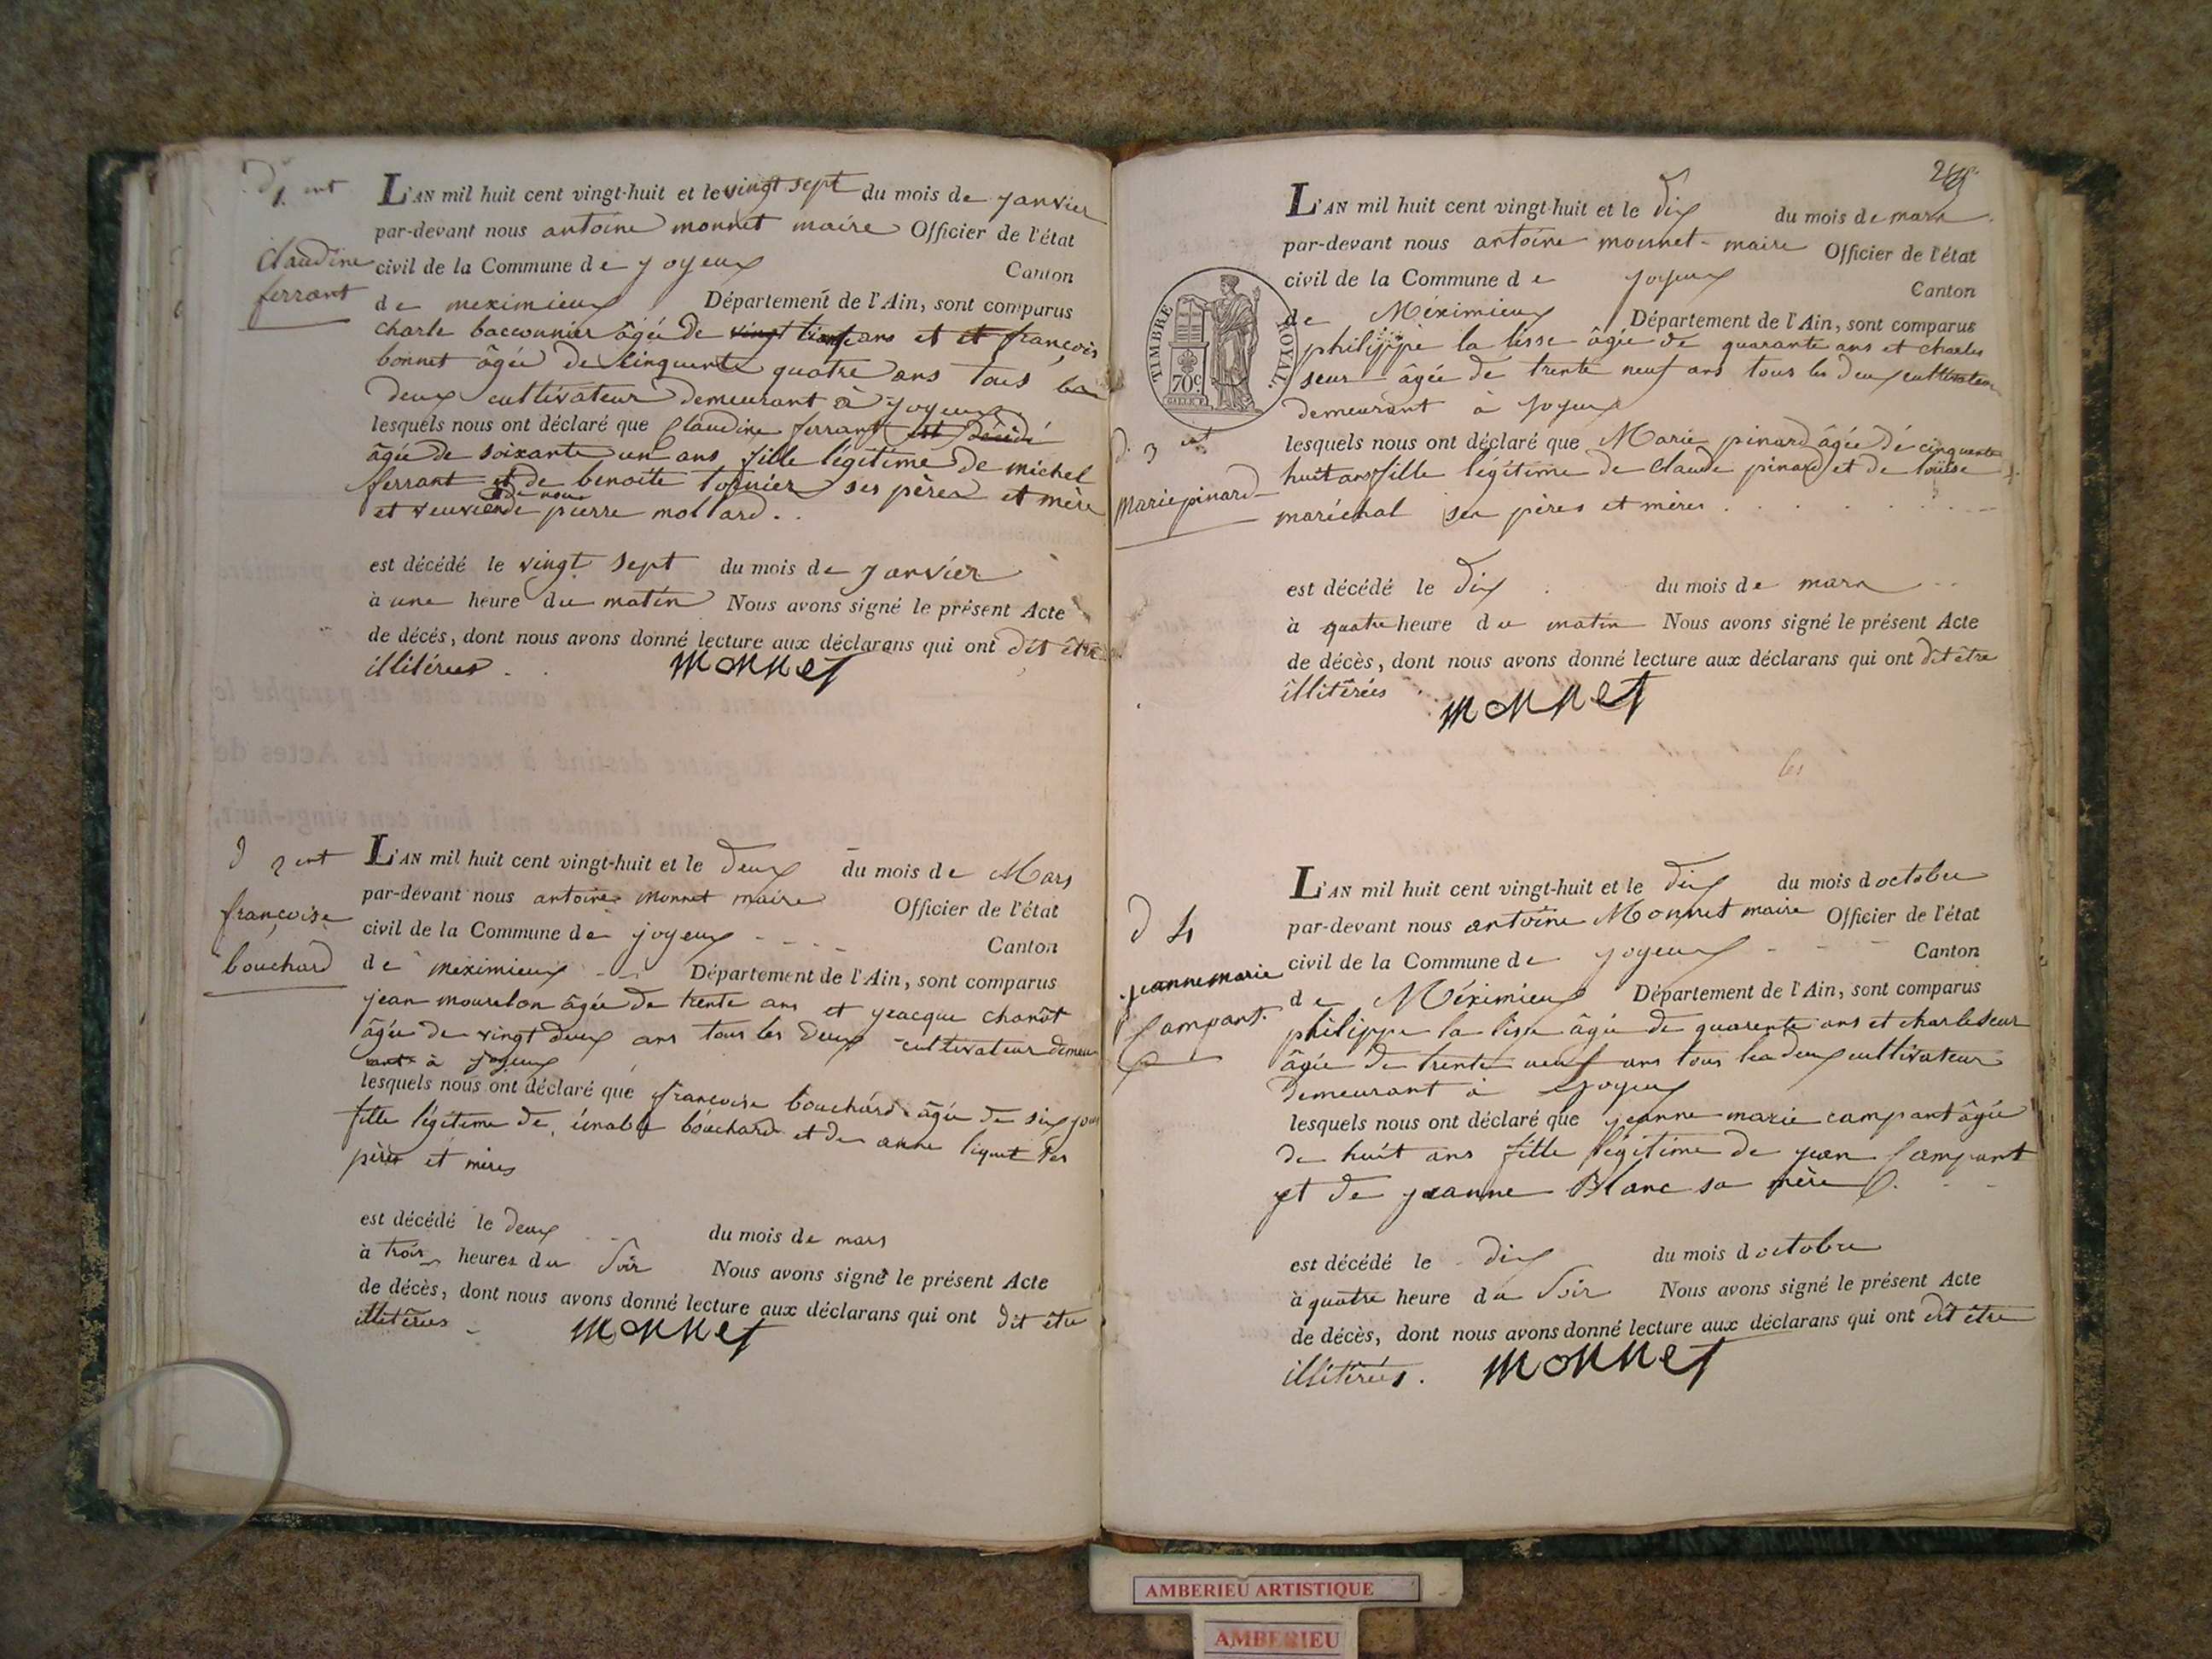 d 1 ent
Claudine
ferrant
L'AN mil huit cent vingt-huit et le vingt sept du mois de janvier
par-devant nous antoine monnet maire Officier de l'état
civil de la Commune de joyeux Canton
de meximieux Département de l'Ain, sont comparus
charle baccounier âgée de vingt ans et et françois
bonnet âgée de cinquente quatre ans tous les
deux cultivateur demeurant à joyeux
lesquels nous ont déclaré que Claudine ferrant est décédé
âgée de soixante un ans fille légitime de michel
ferrant et de benoite ses pères et mère
et veuve de pierre mollard . .
est décédé le vingt sept du mois de janvier
à une heure du matin Nous avons signé le présent Acte
de décés, dont nous avons donné lecture aux déclarans qui ont dit être
illitérées . monnet
d 2 ent
françoise
bouchard
L'AN mil huit cent vingt-huit et le deux du mois de Mars
par-devant nous antoine monnet maire Officier de l'état
civil de la Commune de joyeux Canton
de meximieux Département de l'Ain, sont comparus
jean mourelon âgée de trente ans et jeacque chanôt
âgée de vingt deux ans tous les deux cultivateur demeu
ant à joyeux
lesquels nous ont déclaré que françoise bouchard âgée de six jour
fille légitime de bouchard et de anne liqut ses
pères et mères
est décédé le deux du mois de mars
à trois heures du soir Nous avons signé le présent Acte
de décès, dont nous avons donné lecture aux déclarans qui ont dit être
illitérées monnet
TIMBRE ROYAL
70c
d. 3 ent
Marie pinard
L'AN mil huit cent vingt-huit et le dix du mois de mars
par-devant nous antoine monnet maire Officier de l'état
civil de la Commune de joyeux Canton
de Méximieux Département de l'Ain, sont comparus
philippe la lisse âgée de quarante ans et charles
seur âgée de trente neuf ans tous les deux cultivateur
demeurant à joyeux
lesquels nous ont déclaré que Marie pinard âgée de cinquante
huit ans fille légitime de Claude pinard et de louise
maréchal ses pères et mères . . . . . . .
est décédé le dix du mois de mars
à quatre heure du matin Nous avons signé le présent Acte
de décès, dont nous avons donné lecture aux déclarans qui ont dit être
illitérées monnet
d 4
jeanne marie
Campant
L'AN mil huit cent vingt-huit et le dix du mois d octobre
par-devant nous antoine Monnet maire Officier de l'état
civil de la Commune de joyeux Canton
de Méximieux Département de l'Ain, sont comparus
philippe la lisse âgée de quarente ans et charle seur
âgée de trente neuf ans tous les deux cultivateur
demeurant à joyeux
lesquels nous ont déclaré que jeanne marie campant âgée
de huit ans fille légitime de jean Campant
et de jeanne Blanc sa mère
est décédé le dix du mois d octobre
à quatre heure du soir Nous avons signé le présent Acte
de décès, dont nous avons donné lecture aux déclarans qui ont dit être
illitérées . monnet
AMBERIEU ARTISTIQUE
AMBERIEU